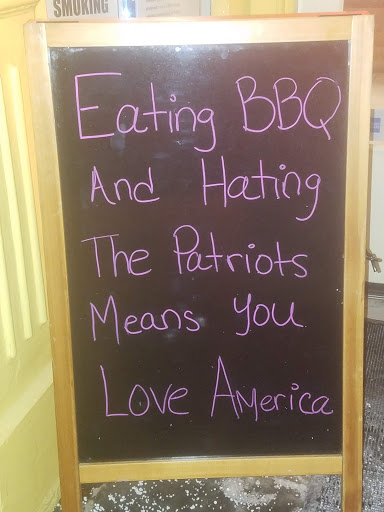 SMOKING
Eating BBQ
And Hating
The Patriots
Means You
Love America